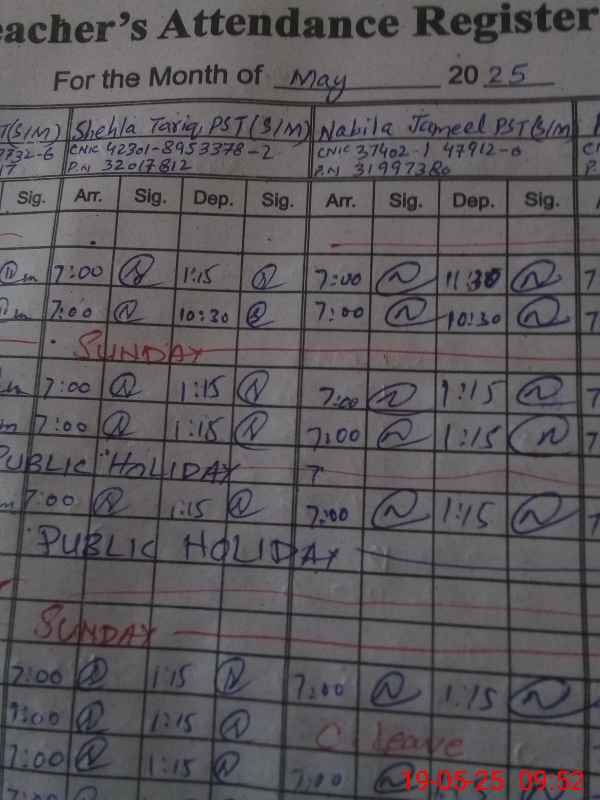 eacher's Attendance Register
For the Month of May 2025
T(S/M) Shehla Tariq, PST (S/M) Nabila Jameel PST(S/M)
3732-6 CNIC 42301-8953378-2 CNIC 37402-1 47912-0
17 P.N 32017812 P.N 31997380
Sig. Arr. Sig. Dep. Sig. Arr. Sig. Dep. Sig.
7:00 1:15 7:00 11:30
7:00 10:30 7:00 10:30
SUNDAY
7:00 1:15 7:00 1:15
7:00 1:15 7:00 1:15
PUBLIC HOLIDAY 7
7:00 1:15 7:00 1:15
PUBLIC HOLIDAY
SUNDAY
7:00 1:15 7:00 1:15
7:00 1:15 C. leave
7:00 1:15 7:00
7:00
19-05-25 09:52